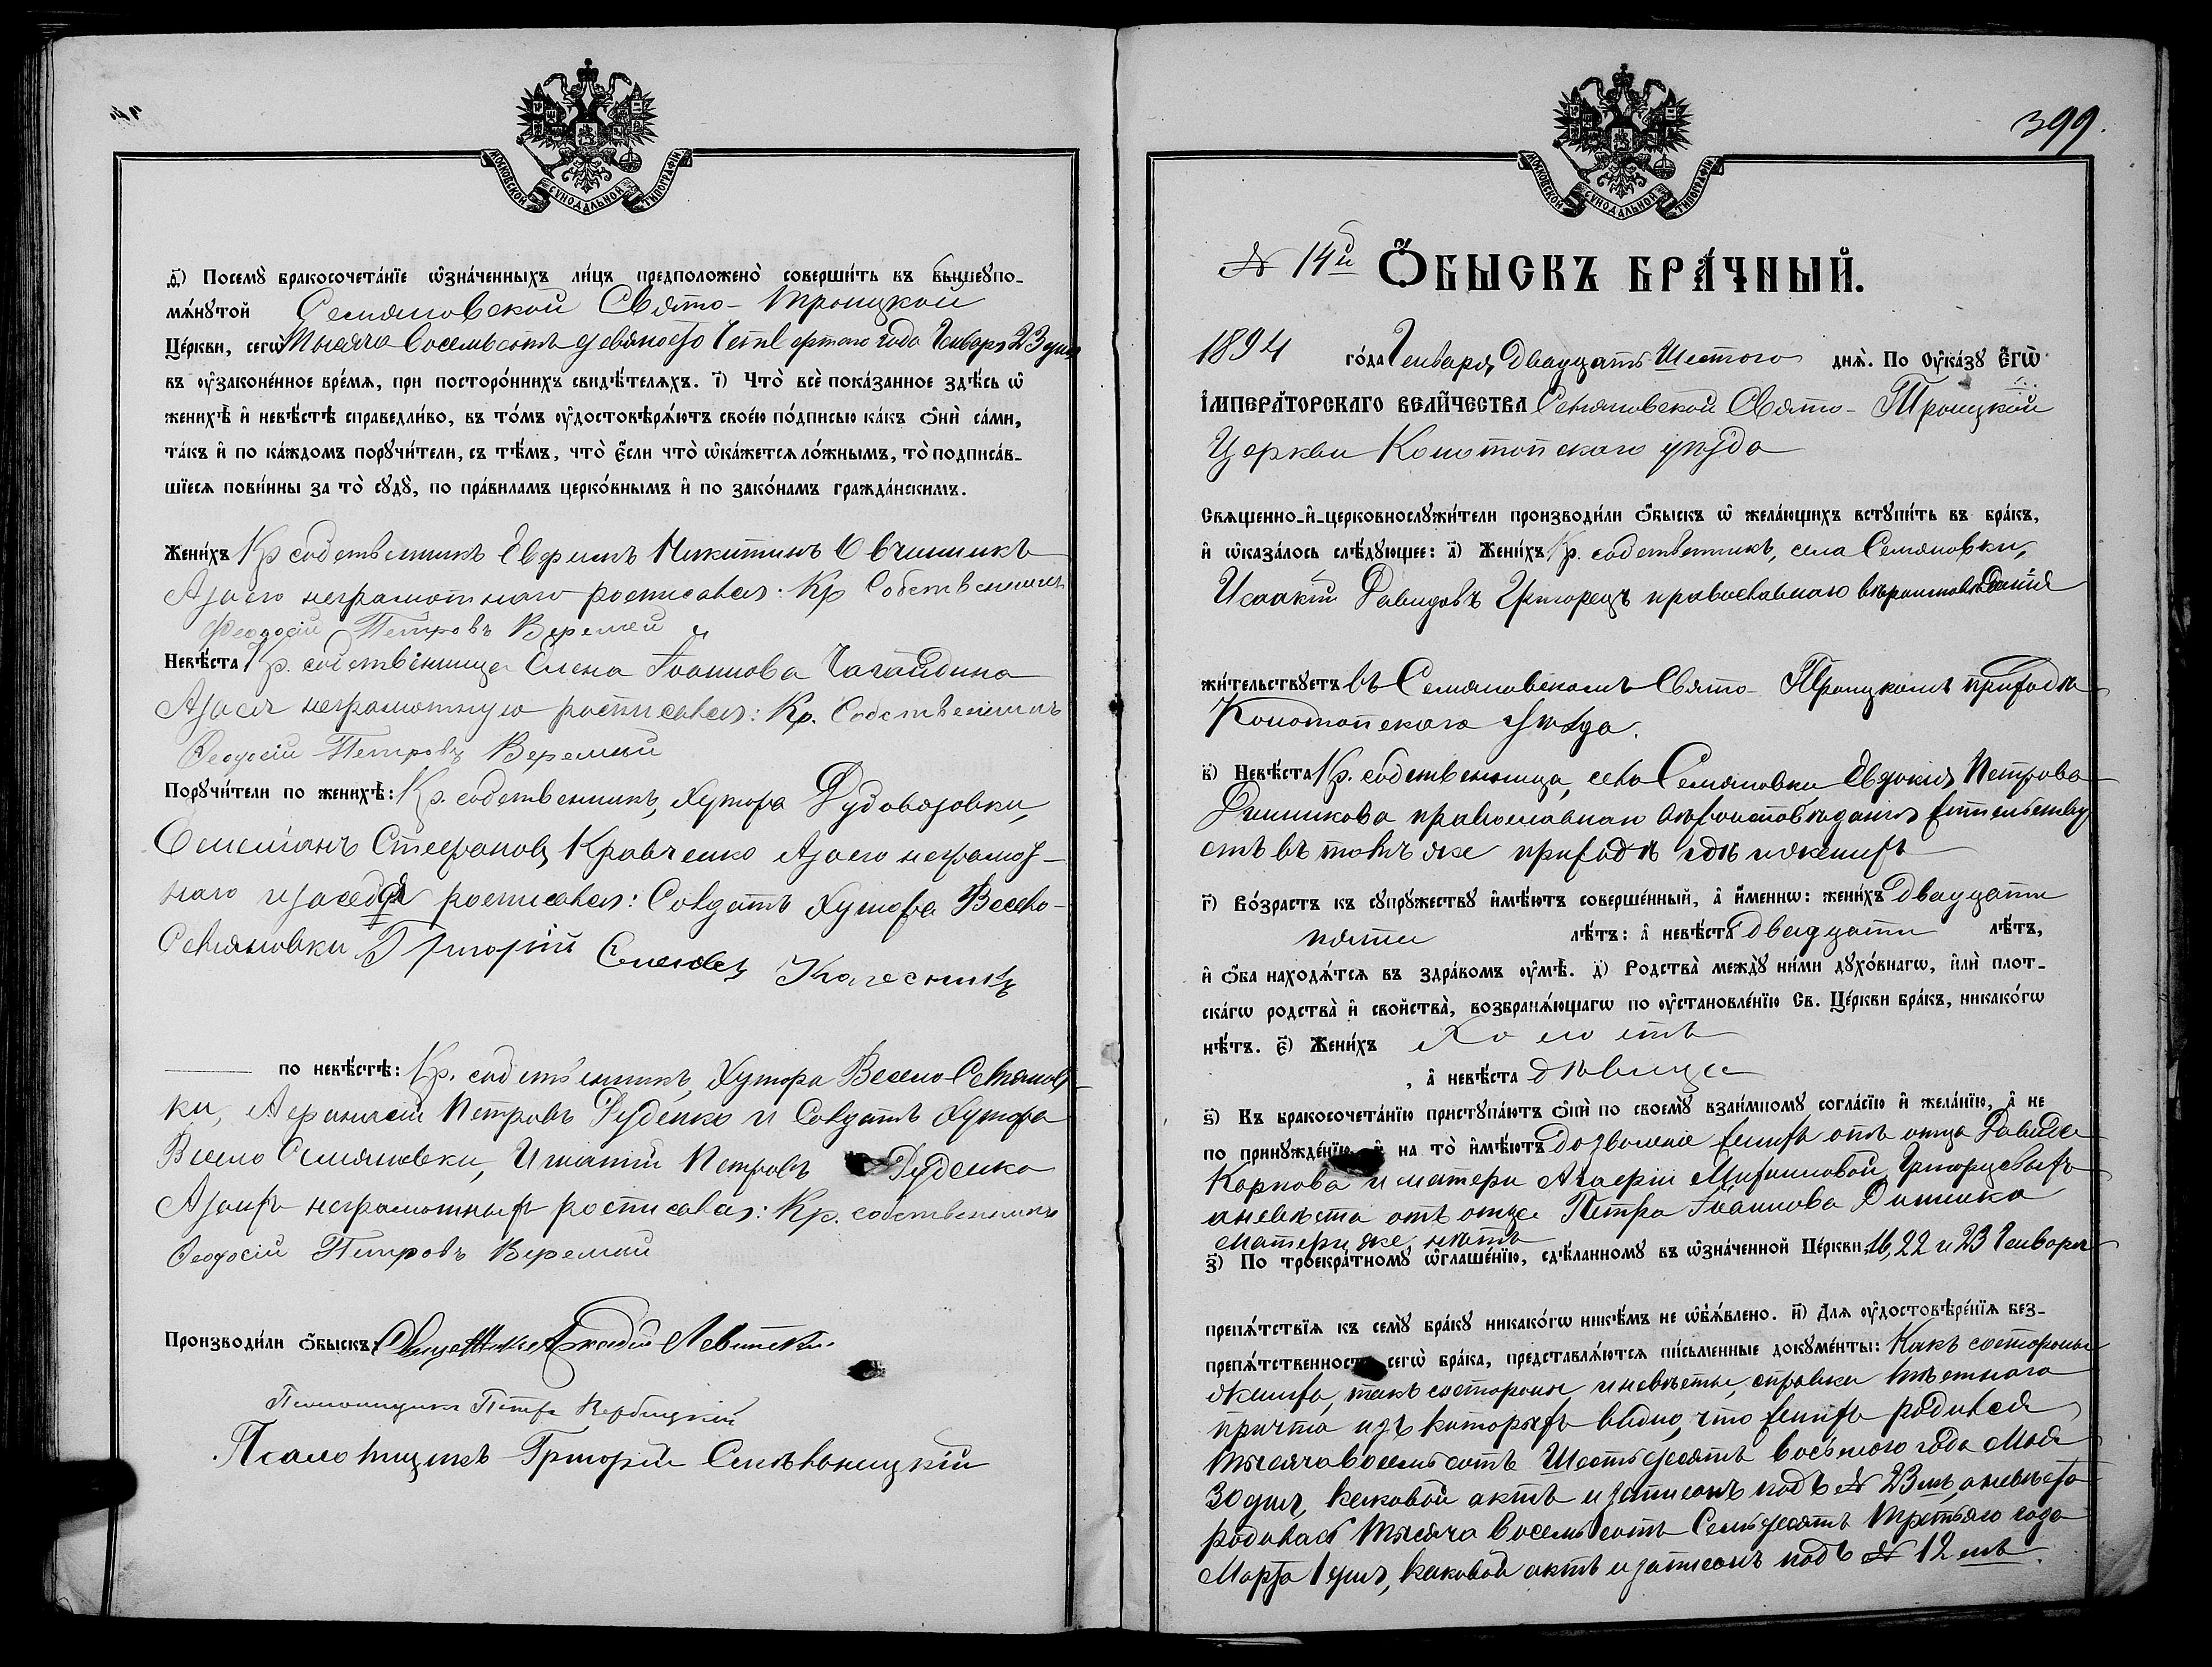 МОСКОВСКОЙ СѴНОДАЛЬНОЙ ТИПОГРАФІИ
д҃) Посемꙋ̀ бракосочета́нїе ѡ҆зна́ченныхъ ли́цъ предположено̀ соверши́ть въ вышеꙋпо-
мѧ́нꙋтой Семяновской Свято-Троицкой
Це́ркви, сегѡ̀ Тысяча восемьсотъ девяносто Четвертаго года Генваря 23 дня
въ ᲂу҆законе́нное вре́мѧ, при посторо́ннихъ свидѣ́телѧхъ. і҃) Что̀ всѐ пока́занное здѣ́сь ѡ҆
женихѣ̀ и҆ невѣ́стѣ справедли́во, въ то́мъ ᲂу҆достовѣрѧ́ютъ свое́ю по́дписью ка́къ ѻ҆нѝ са́ми,
та́къ и҆ по ка́ждомъ порꙋчи́тели, съ тѣ́мъ, что̀ є҆́сли что̀ ѡ҆ка́жетсѧ ло́жнымъ, то̀ подписа́в-
шїесѧ пови́нны за то̀ сꙋдꙋ̀, по пра́виламъ церко́внымъ и҆ по зако́намъ гражда́нскимъ.
Жени́хъ Кр. собственникъ Евфимъ Никитинъ Овчинникъ
А за его неграмотнаго росписался: Кр. Собственникъ
Феодосій Петровъ Веремей
Невѣ́ста Кр. собственница Елена Іоаннова
А за ея неграмотную росписался: Кр. Собственникъ
Феодосій Петровъ Веремей
Порꙋчи́тели по женихѣ̀: Кр. собственникъ, Хутора
Стефановъ Кравченко А за его неграмот-
наго и за себя росписался: Солдатъ Хутора Весело-
Семяновки Григорій Колесникъ
по невѣ́стѣ: Кр. собственникъ, Хутора Весело-Семянов-
ки, Аѳанасій Петровъ Руденко и Солдатъ Хутора
Весело Семяновки, Игнатій Петровъ Руденко
А за ихъ неграмотныхъ росписался: Кр. собственникъ
Феодосій Петровъ Веремей
Производи́ли ѻ҆́быскъ: Священникъ Аркадій Левитскій
Петръ Вербицкій
Псаломщикъ Григорій
399.
МОСКОВСКОЙ СѴНОДАЛЬНОЙ ТИПОГРАФІИ
№ 14й Ѻ҆́БЫСКЪ БРА́ЧНЫЙ.
1894 го́да Генваря Двадцать Шестого днѧ̀. По Оу҆ка́зꙋ Є҆гѡ̀
І҆МПЕРА́ТОРСКАГО ВЕЛИ́ЧЕСТВА Семяновской Свято-Троицкой
Церкви Конотопскаго уѣзда
Свѧщенно-и҆-церковнослꙋжи́тели производи́ли ѻ҆́быскъ ѡ҆ жела́ющихъ встꙋпи́ть въ бра́къ,
и҆ ѡ҆каза́лось слѣ́дꙋющее: а҃) Жени́хъ Кр. собственникъ, села Семяновки,
Исаакій Давидовъ Григорецъ православнаго вѣроисповѣданія
жи́тельствꙋетъ въ Семяновскомъ Свято-Троицкомъ приходѣ
Конотопскаго уѣзда.
в҃) Невѣ́ста Кр. собственница, села Семяновки Евдокія Петрова
православнаго вѣроисповѣданія жительству-
етъ въ томъ же приходѣ гдѣ и женихъ
г҃) Во́зрастъ къ сꙋпрꙋ́жествꙋ и҆мѣ́ютъ соверше́нный, а҆ и҆́меннѡ: жени́хъ двадцати
пяти лѣ́тъ: а҆ невѣ́ста двадцати лѣ́тъ,
и҆ ѻ҆́ба нахо́дѧтсѧ въ здра́вомъ ᲂу҆мѣ̀. д҃) Родства̀ междꙋ̀ ни́ми дꙋхо́внагѡ, и҆лѝ плот-
ска́гѡ родства̀ и҆ свойства̀, возбранѧ́ющагѡ по ᲂу҆становле́нїю Св. Це́ркви бра́къ, никако́гѡ
нѣ́тъ. є҃) Жени́хъ Холостъ
, а҆ невѣ́ста дѣвица
ѕ҃) Къ бракосочета́нїю пристꙋпа́ютъ ѻ҆нѝ по своемꙋ̀ взаи́мномꙋ согла́сїю и҆ жела́нїю, а҆ не
по принꙋжде́нїю и҆ на то̀ и҆мѣ́ютъ дозволеніе женихъ отъ отца Давида
Карпова и матери Агаѳіи
а невѣста отъ отца Петра Іоаннова
матери же нѣтъ
з҃) По троекра́тномꙋ ѡ҆глаше́нїю, сдѣ́ланномꙋ въ ѡ҆зна́ченной Це́ркви 16, 22 и 23 Генваря
препѧ́тствїѧ къ семꙋ̀ бра́кꙋ никако́гѡ никѣ́мъ не ѡ҆б̾ѧ́влено. и҃) Длѧ ᲂу҆достовѣре́нїѧ без-
препѧ́тственности сегѡ̀ бра́ка, представлѧ́ютсѧ пи́сьменные докꙋме́нты: Какъ состороны
Жениха, такъ состороны и невѣсты, справки мѣстнаго
причта изъ которыхъ видно, что женихъ родился
тысяча восемьсотъ Шестьдесятъ восьмого года Мая
30 дня, каковой актъ и записанъ подъ № 23мъ, а невѣста
родилась тысяча восемьсотъ Семьдесятъ третьяго года
Марта 1 дня, каковой актъ и записанъ подъ № 12мъ.